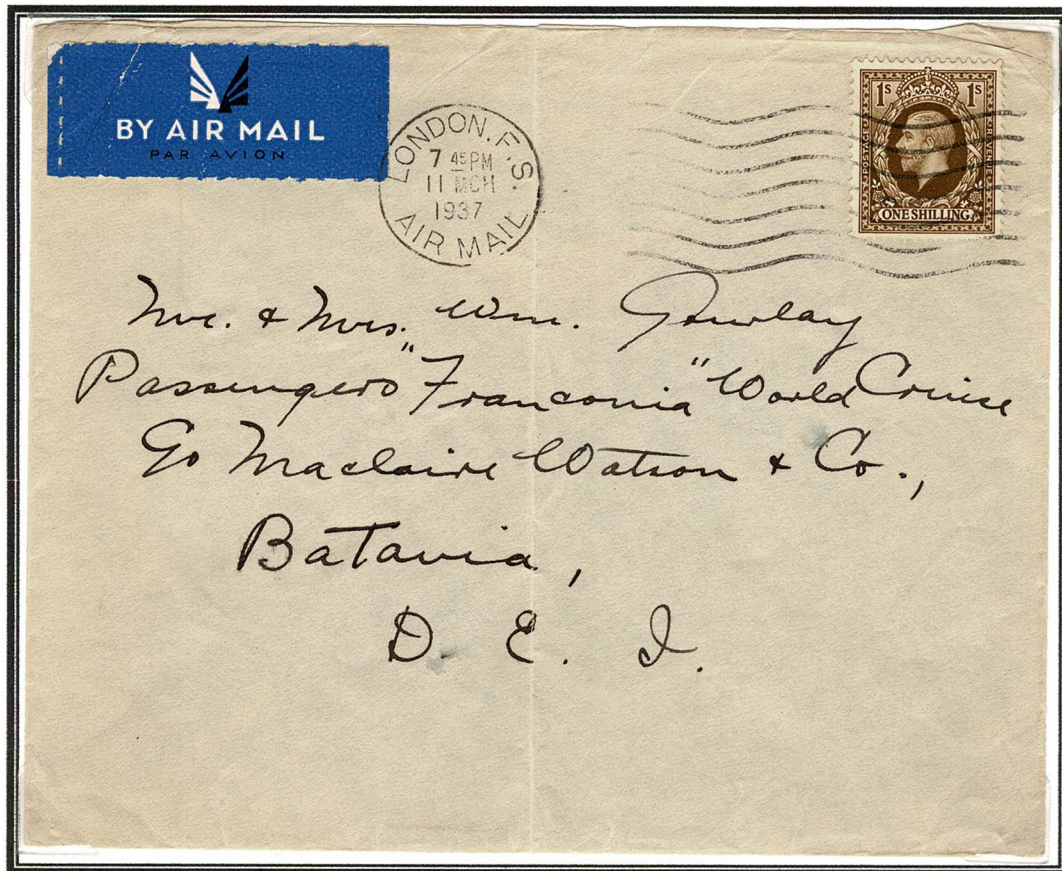 BY AIR MAIL
PAR AVION
LONDON. F. S.
7 45 PM
11 MCH
1937
AIR MAIL
1S 1S
POSTAGE REVENUE
ONE SHILLING
Mr. & Mrs. Wm. Gourlay
Passengers "Franconia" World Cruise
c/o Maclaire Watson & Co.,
Batavia,
D. E. I.